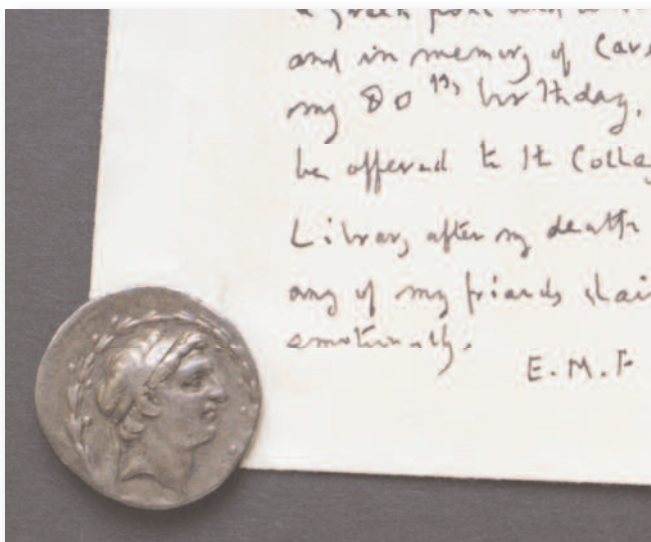 a great poet
and in memory of Cav
my 80th birthday.
be offered to the Colleg
Library after my death
any of my friends clai
emotionally.
E.M.F